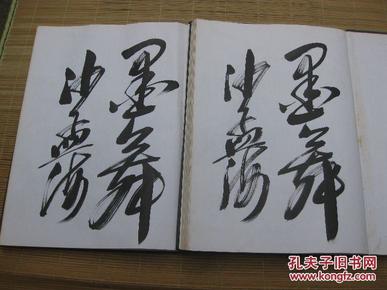 墨舞
沙孟海
墨舞
沙孟海
孔夫子旧书网
www.kongfz.com